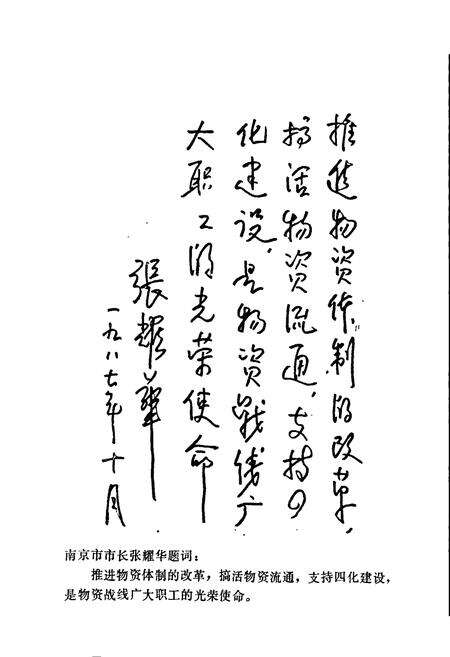 推进物资体制的改革，
搞活物资流通，支持四
化建设，是物资战线广
大职工的光荣使命
張耀華
一九八七年十月
南京市市长张耀华题词：
推进物资体制的改革，搞活物资流通，支持四化建设，
是物资战线广大职工的光荣使命。